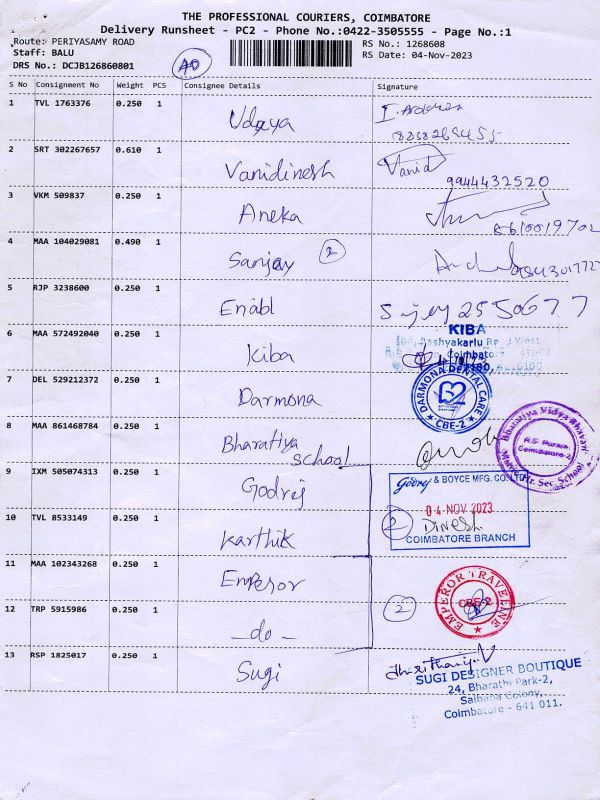 THE PROFESSIONAL COURIERS, COIMBATORE
Delivery Runsheet - PC2 - Phone No.:0422-3505555 - Page No.:1
Route: PERIYASAMY ROAD RS No.: 1268608
Staff: BALU RS Date: 04-Nov-2023
DRS No.: DCJB126860801
S No Consignment No Weight PCS Consignee Details Signature
1 TVL 1763376 0.250 1 Udaya
2 SRT 302267657 0.610 1 Vanidinesh Vanid
9944432520
3 VKM 509837 0.250 1 Aneka
8610019702
4 MAA 104029081 0.490 1 Sanjay 2
5 RJP 3238600 0.250 1 Enabl
6 MAA 572492040 0.250 1 Kiba KIBA
7 DEL 529212372 0.250 1 Darmona DARMONA DENTAL CARE
CBE-2
8 MAA 861468784 0.250 1 Bharatiya
School
Bharatiya Vidya Bhavan
Matric Hr. Sec. School
R.S. Puram,
Coimbatore-2
9 IXM 505074313 0.250 1 Godrej Godrej & BOYCE MFG. CO. LTD
04 NOV 2023
10 TVL 8533149 0.250 1 Karthik 2 Dinesh
COIMBATORE BRANCH
11 MAA 102343268 0.250 1 Emperor EMPEROR TRAVELINE
CBE-2
12 TRP 5915986 0.250 1 -do- 2
13 RSP 1825017 0.250 1 Sugi
SUGI DESIGNER BOUTIQUE
24, Bharathi Park-2,
Saibaba Colony,
Coimbatore - 641 011.